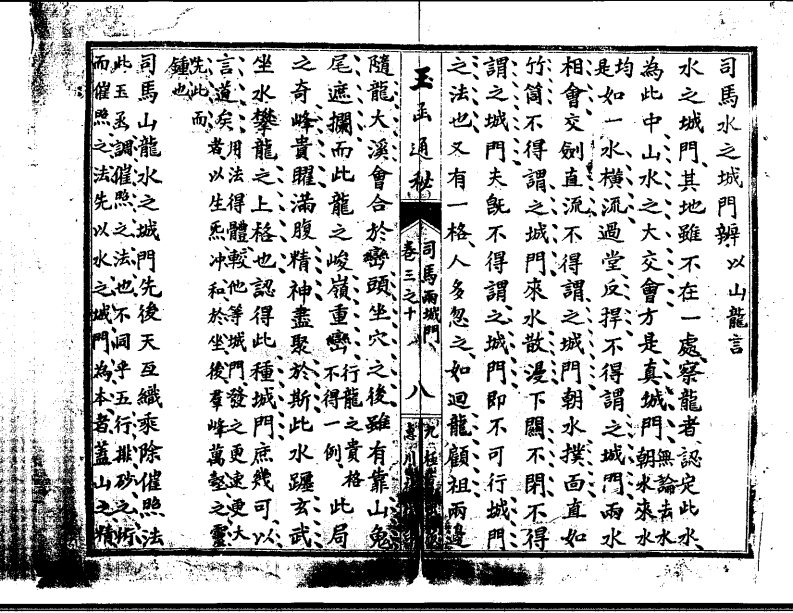 司馬水之城門辨以山龍言
水之城門其地雖不在一處察龍者認定此水
為此中山水之大交會方是真城門無論去水朝水來水
均是如一水橫流過堂反捍不得謂之城門兩水
相會交劍直流不得謂之城門朝水撲面直如
竹筒不得謂之城門來水散漫下關不閉不得
謂之城門夫既不得謂之城門即不可行城門
之法也又有一格人多忽之如迴龍顧祖兩邊
玉函通秘
卷三之十 司馬兩城門
八
隨龍大溪會合於巒頭坐穴之後雖有靠山兔
尾遮攔而此龍之峻嶺重巒行龍之貴格不得一例此局
之奇峰貴矅滿腹精神盡聚於斯此水躔玄武
坐水攀龍之上格也認得此種城門庶幾可以
言道矣用法得體較他等城門發之更速更大者以生炁冲和於坐後羣峰萬壑之靈
先此而鍾也
司馬山龍水之城門先後天互織乘除催照法
此玉函調催照之法也不同乎五行排砂之術
而催照之法先以水之城門為本者蓋山之精